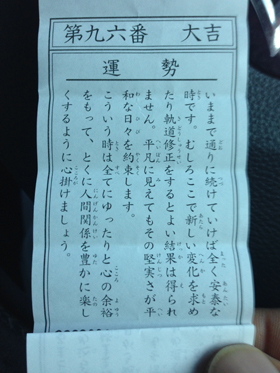 第九六番　大吉
運勢
いままで通りに続けていけば全く安泰な
時です。むしろここで新しい変化を求め
たり軌道修正をするとよい結果は得られ
ません。平凡に見えてもその堅実さが平
和な日々を約束します。
こういう時は全てにゆったりと心の余裕
をもって、とくに人間関係を豊かに楽し
くするように心掛けましょう。